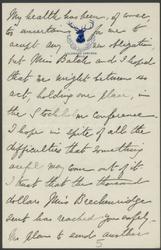 My health has been, of course
so uncertain for me to
accept any new obligation
but Miss Balch and I hoped
that we might between us
act, holding one place, in
the Stockholm conference
I hope in spite of all the
difficulties that something
may come out of it
I trust that the thousand
dollars Miss Breckenridge
sent has reached you safely.
We plan to send another
5